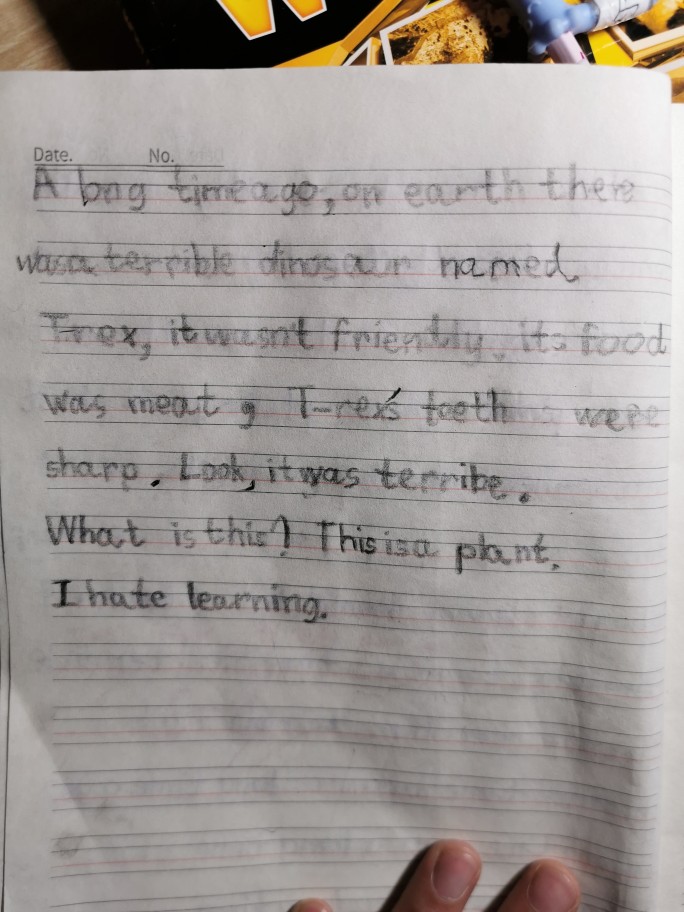 W
Date. No.
A long time ago, on earth there
was a terrible dinosaur named
T-rex, it wasn't friendly, its food
was meat, T-rex's teeth were
sharp. Look, it was terribe.
What is this? This is a plant.
I hate learning.